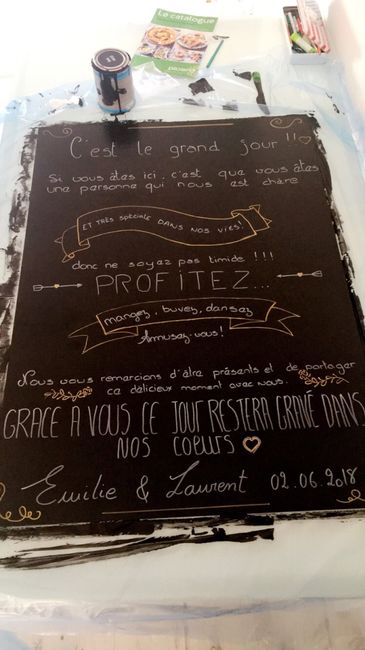 Le catalogue
C'est le grand jour !!
Si vous êtes ici, c'est que vous êtes
une personne qui nous est chère
ET TRÈS Spéciale DANS NOS VIES!
donc ne soyez pas timide !!!
PROFITEZ...
mangez, buvez, dansez
Amusez-vous!
Nous vous remercions d'être présents et de partager
ce délicieux moment avec nous.
GRACE A VOUS CE JOUR RESTERA GRAVÉ DANS
NOS COEURS
Emilie & Laurent 02.06.2018